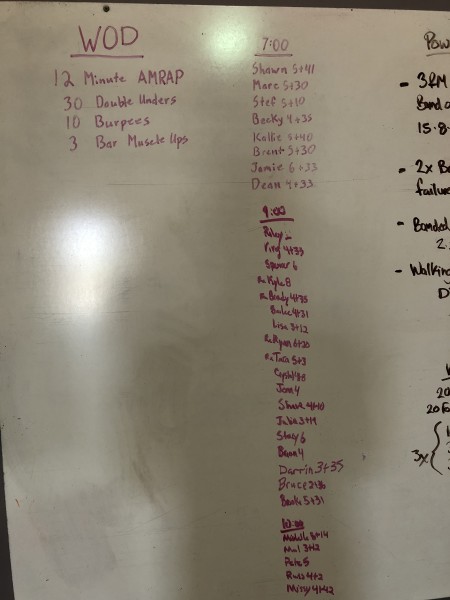 WOD
12 Minute AMRAP
30 Double Unders
10 Burpees
3 Bar Muscle Ups
7:00
Shawn 5+41
Marc 5+30
Stef 5+10
Becky 4+35
Kallie 5+40
Brent 5+30
Jamie 6+33
Dean 4+33
9:00
4+33
Spencer 6
Rx Kyle 8
Rx Brady 4+35
4+31
Lisa 3+12
Rx Ryan 6+20
Rx Tara 5+3
Jenn 4
4+10
Julia 3+19
Stacy 6
4
Darrin 3+35
Bruce
5+31
10:00
3+14
Mal 3+12
Pete 5
Russ 4+2
Missy 4+42
Pow
- 3RM
Band
15.8
- 2x B
failure
- Banded
2.
- Walking
D
20
20
3x